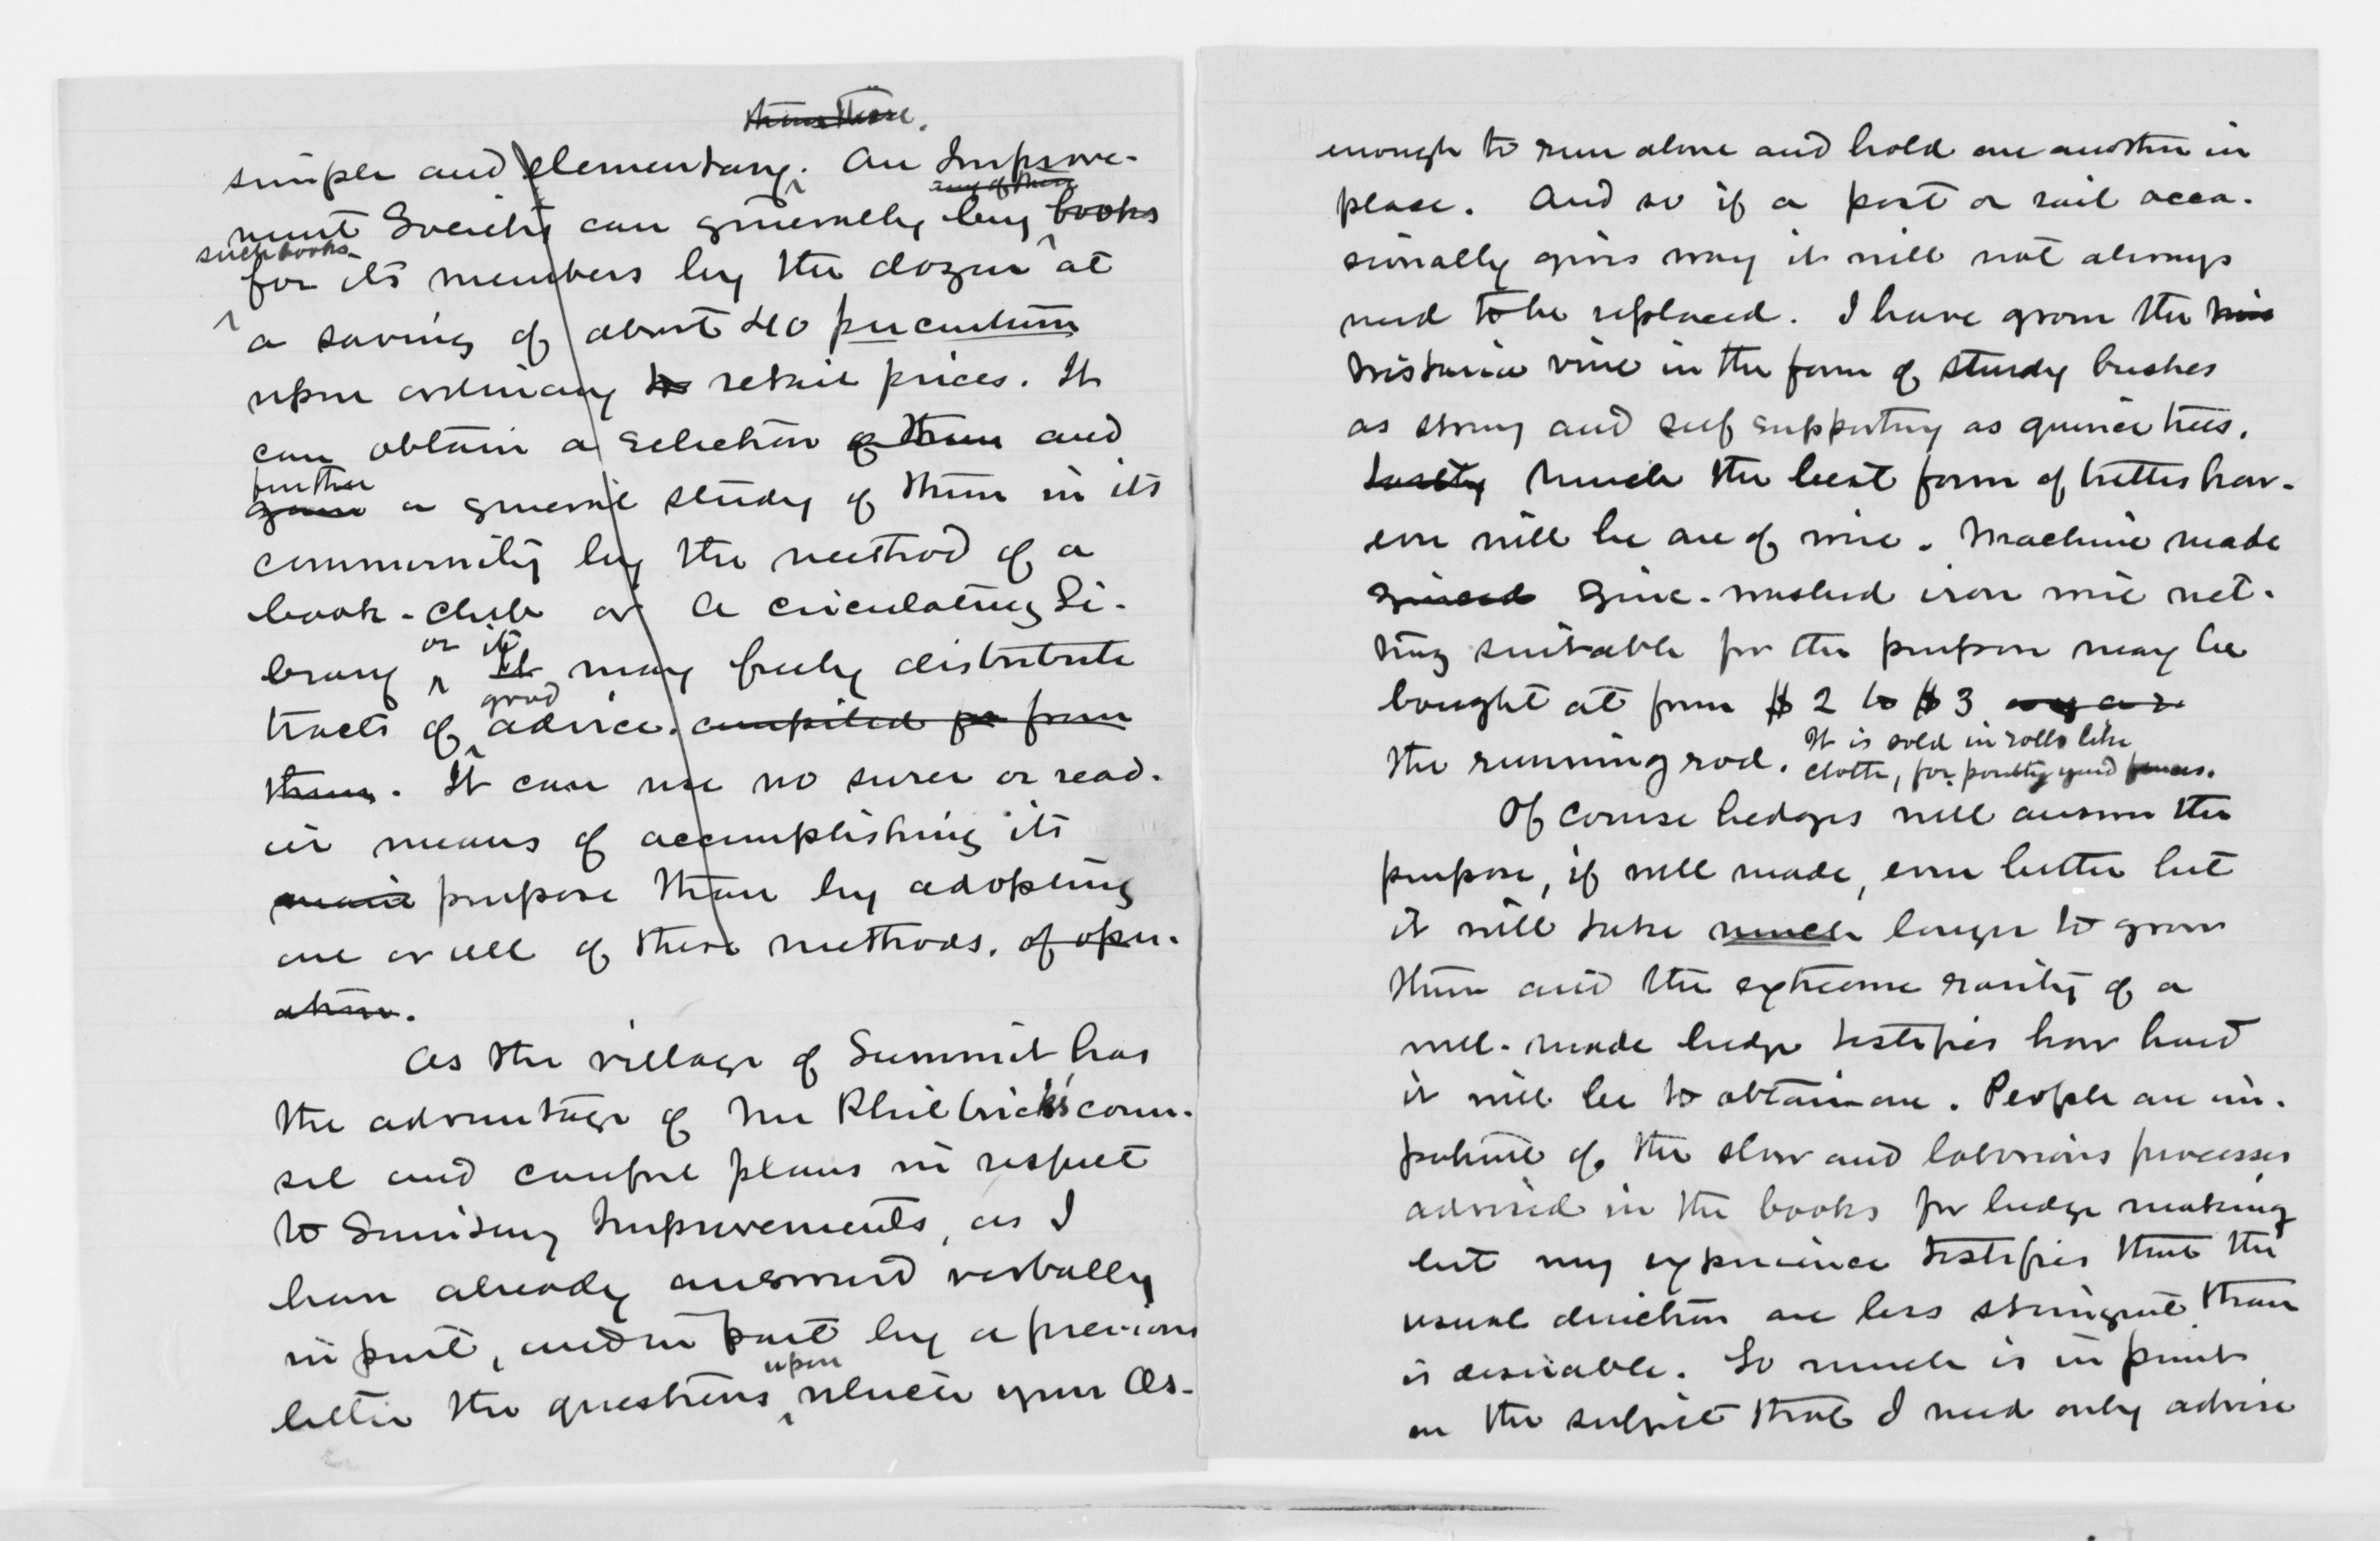 than these.
simple and elementary. An Improve-
any of these
ment Society can generally buy books
such books
for its members by the dozen at
a saving of about 40 per centum
upon ordinary to retail prices. It
can obtain a selection of them and
further
gain a general study of them in its
community by the method of a
book-club or a circulating Li-
or it
brary It may freely distribute
good
tracts of advice. compiled from
them. It can use no surer or read-
ier means of accomplishing its
main purpose than by adopting
one or all of these methods. of oper-
ation.
As the village of Summit has
the advantage of Mr Philbrick's coun-
sel and careful plans in respect
to Sanitary Improvements, as I
have already answered verbally
in part, and in part by a previous
upon
letter the questions which your As-
enough to run alone and hold one another in
place. And so if a post or rail occa-
sionally gives way it will not always
need to be replaced. I have grown the
Wistaria vine in the form of sturdy bushes
as strong and self supporting as quince trees.
Lastly Much the best form of trellis how-
ever will be one of wire. Machine made
zinc-washed iron wire net-
ting suitable for the purpose may be
bought at from $2 to $3
It is sold in rolls like
the running rod. cloth, for poultry yard fences.
Of course hedges will answer the
purpose, if well made, even better but
it will take much longer to grow
them and the extreme rarity of a
well-made hedge testifies how hard
it will be to obtain one. People are im-
patient of the slow and laborious processes
advised in the books for hedge making
but my experience testifies that the
usual direction are less stringent than
is desirable. So much is in print
on the subject that I need only advise